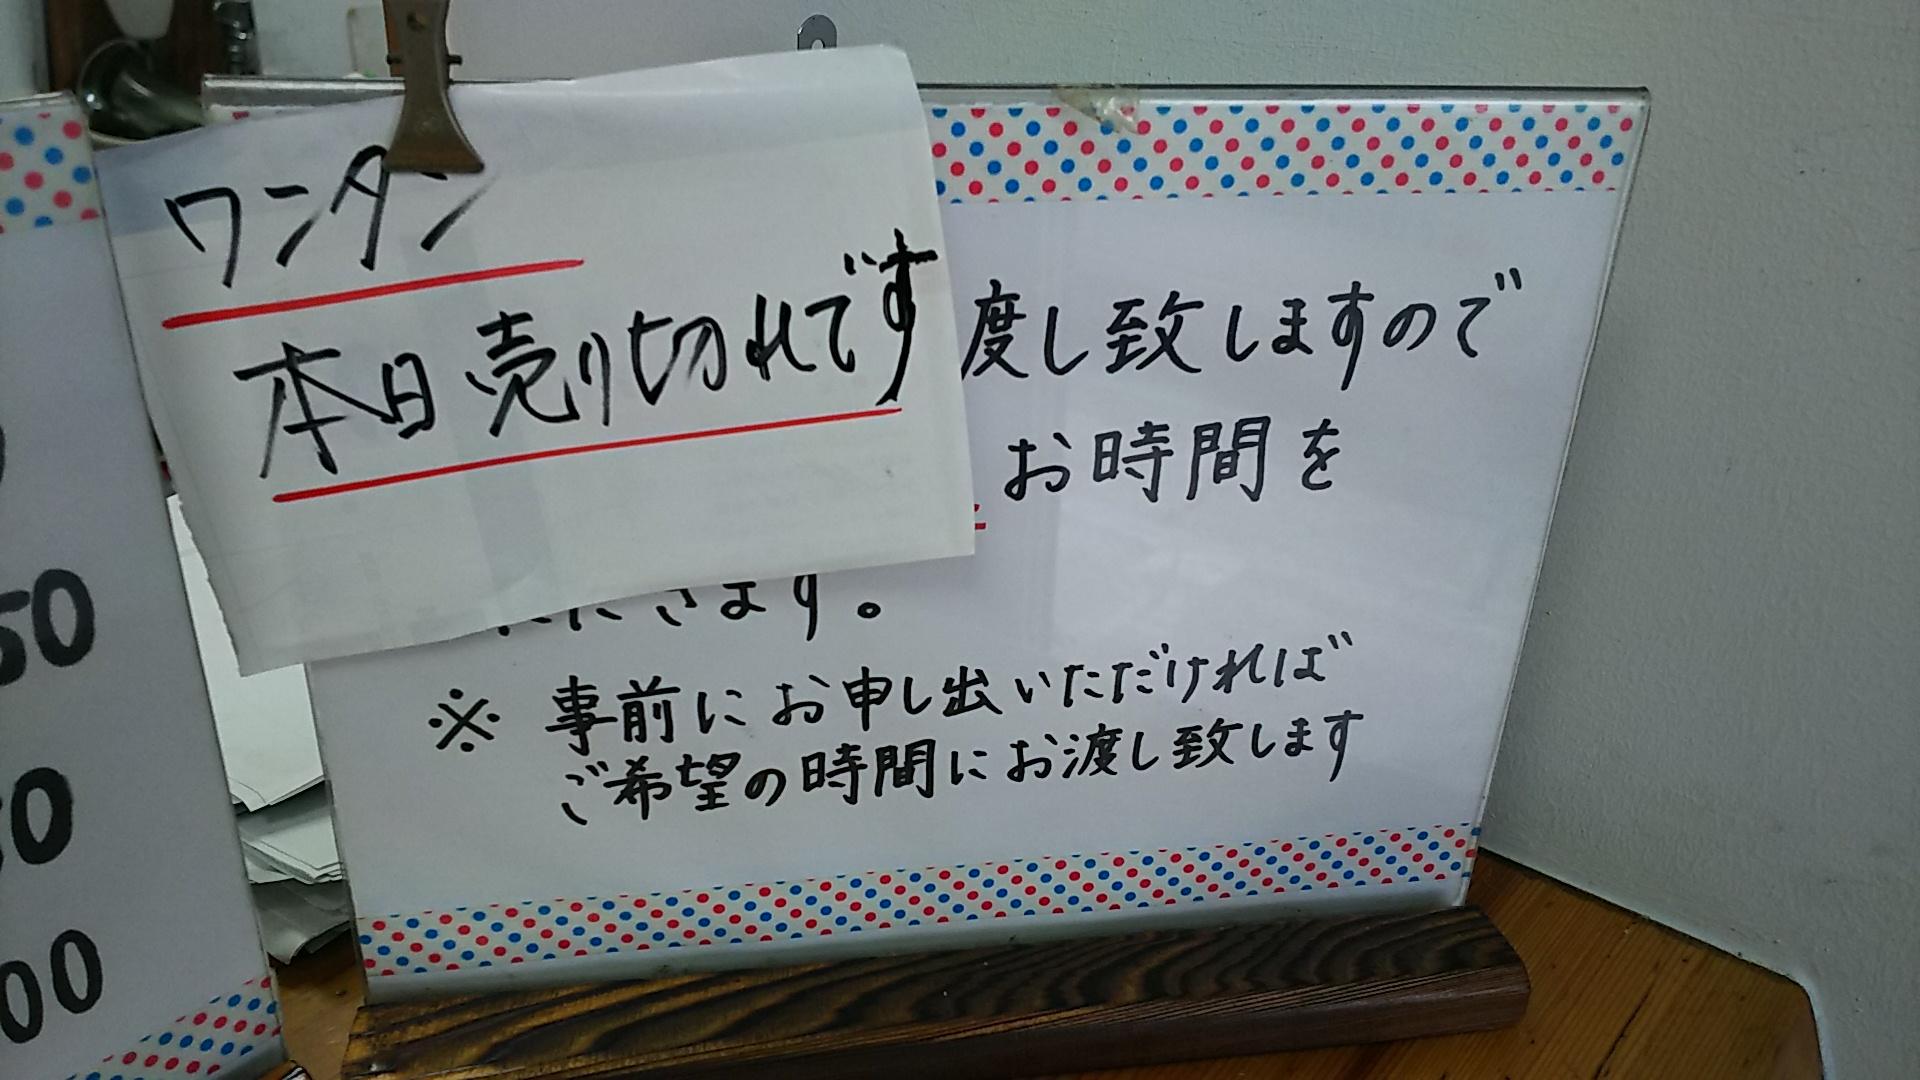 ワンタン
本日売り切れです
度し致しますので
お時間を
きます。
※ 事前にお申し出いただければ
ご希望の時間にお渡し致します
50
00